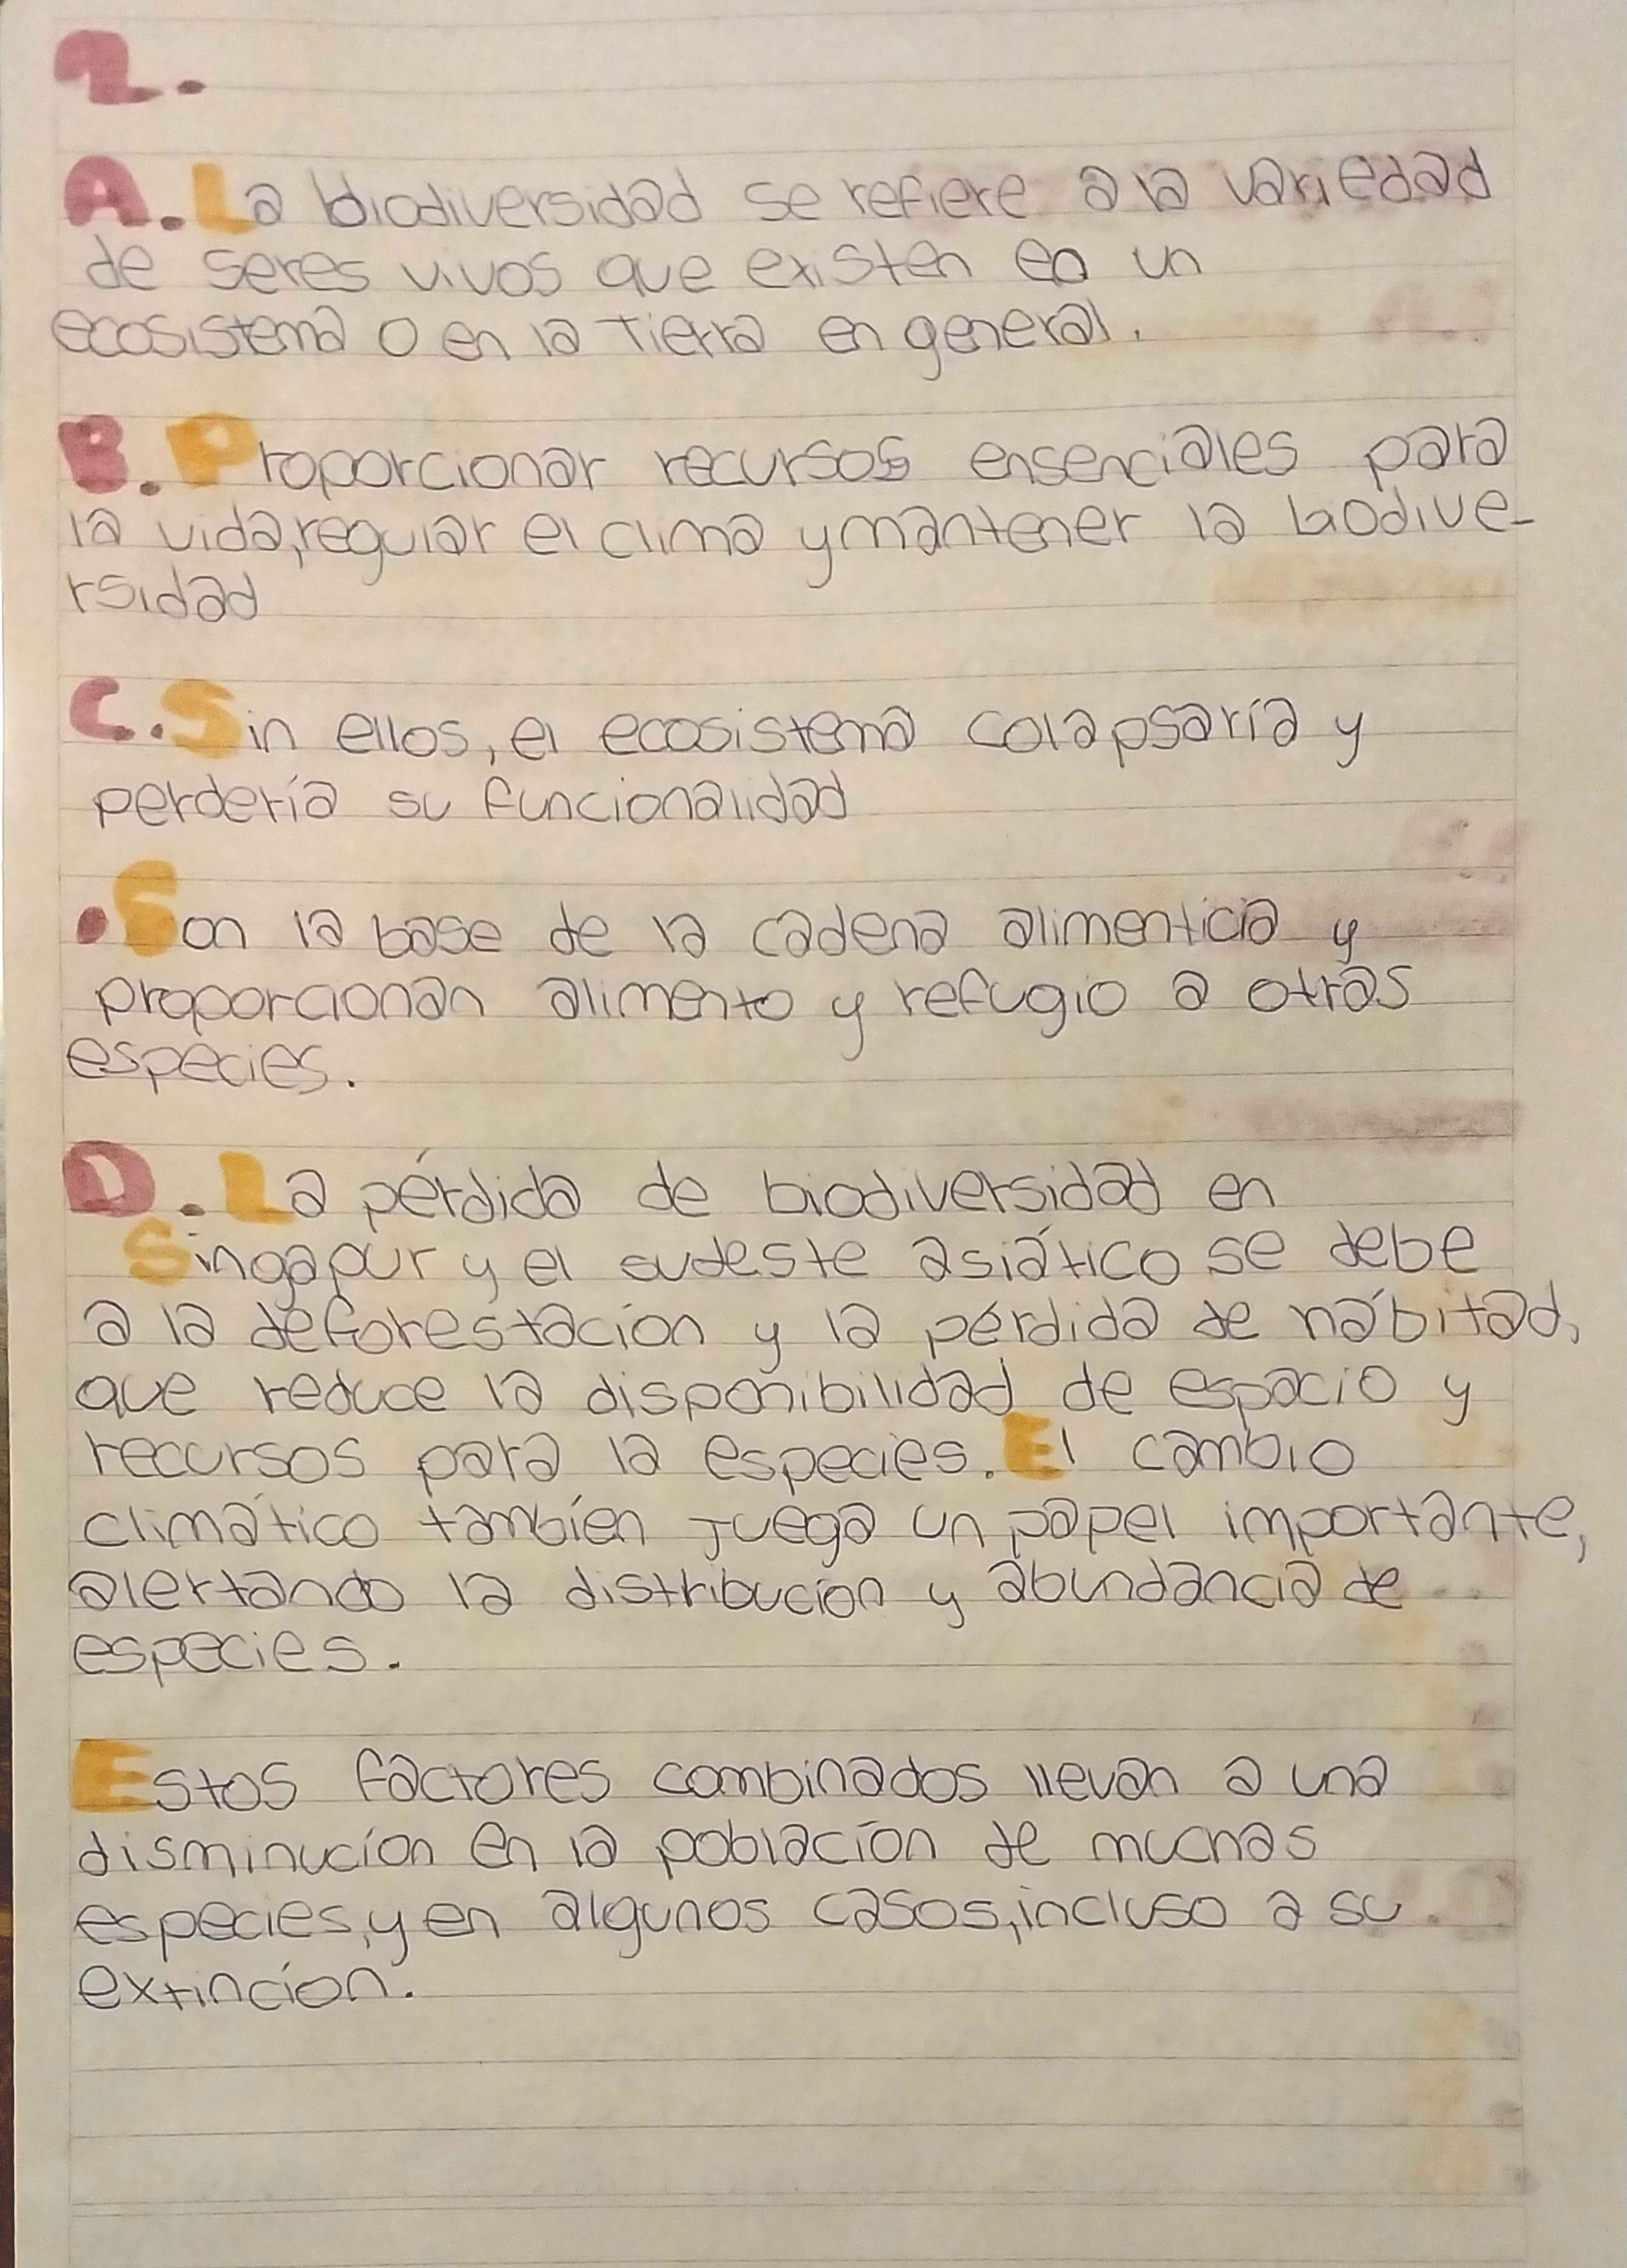 2.
A. La biodiversidad se refiere a la variedad
de seres vivos que existen en un
ecosistema o en la Tierra en general.
B. Proporcionar recursos ensenciales para
la vida, regular el clima y mantener la biodive-
rsidad
C. Sin ellos, el ecosistema colapsaría y
perdería su funcionalidad
• Son la base de la cadena alimenticia y
proporcionan alimento y refugio a otras
especies.
D. La pérdida de biodiversidad en
Singapur y el sudeste asiático se debe
a la deforestación y la pérdida de hábitad,
que reduce la disponibilidad de espacio y
recursos para la especies. El cambio
climático también juega un papel importante,
alertando la distribución y abundancia de
especies.
Estos factores combinados llevan a una
disminución en la población de muchas
especies, y en algunos casos, incluso a su
extinción.